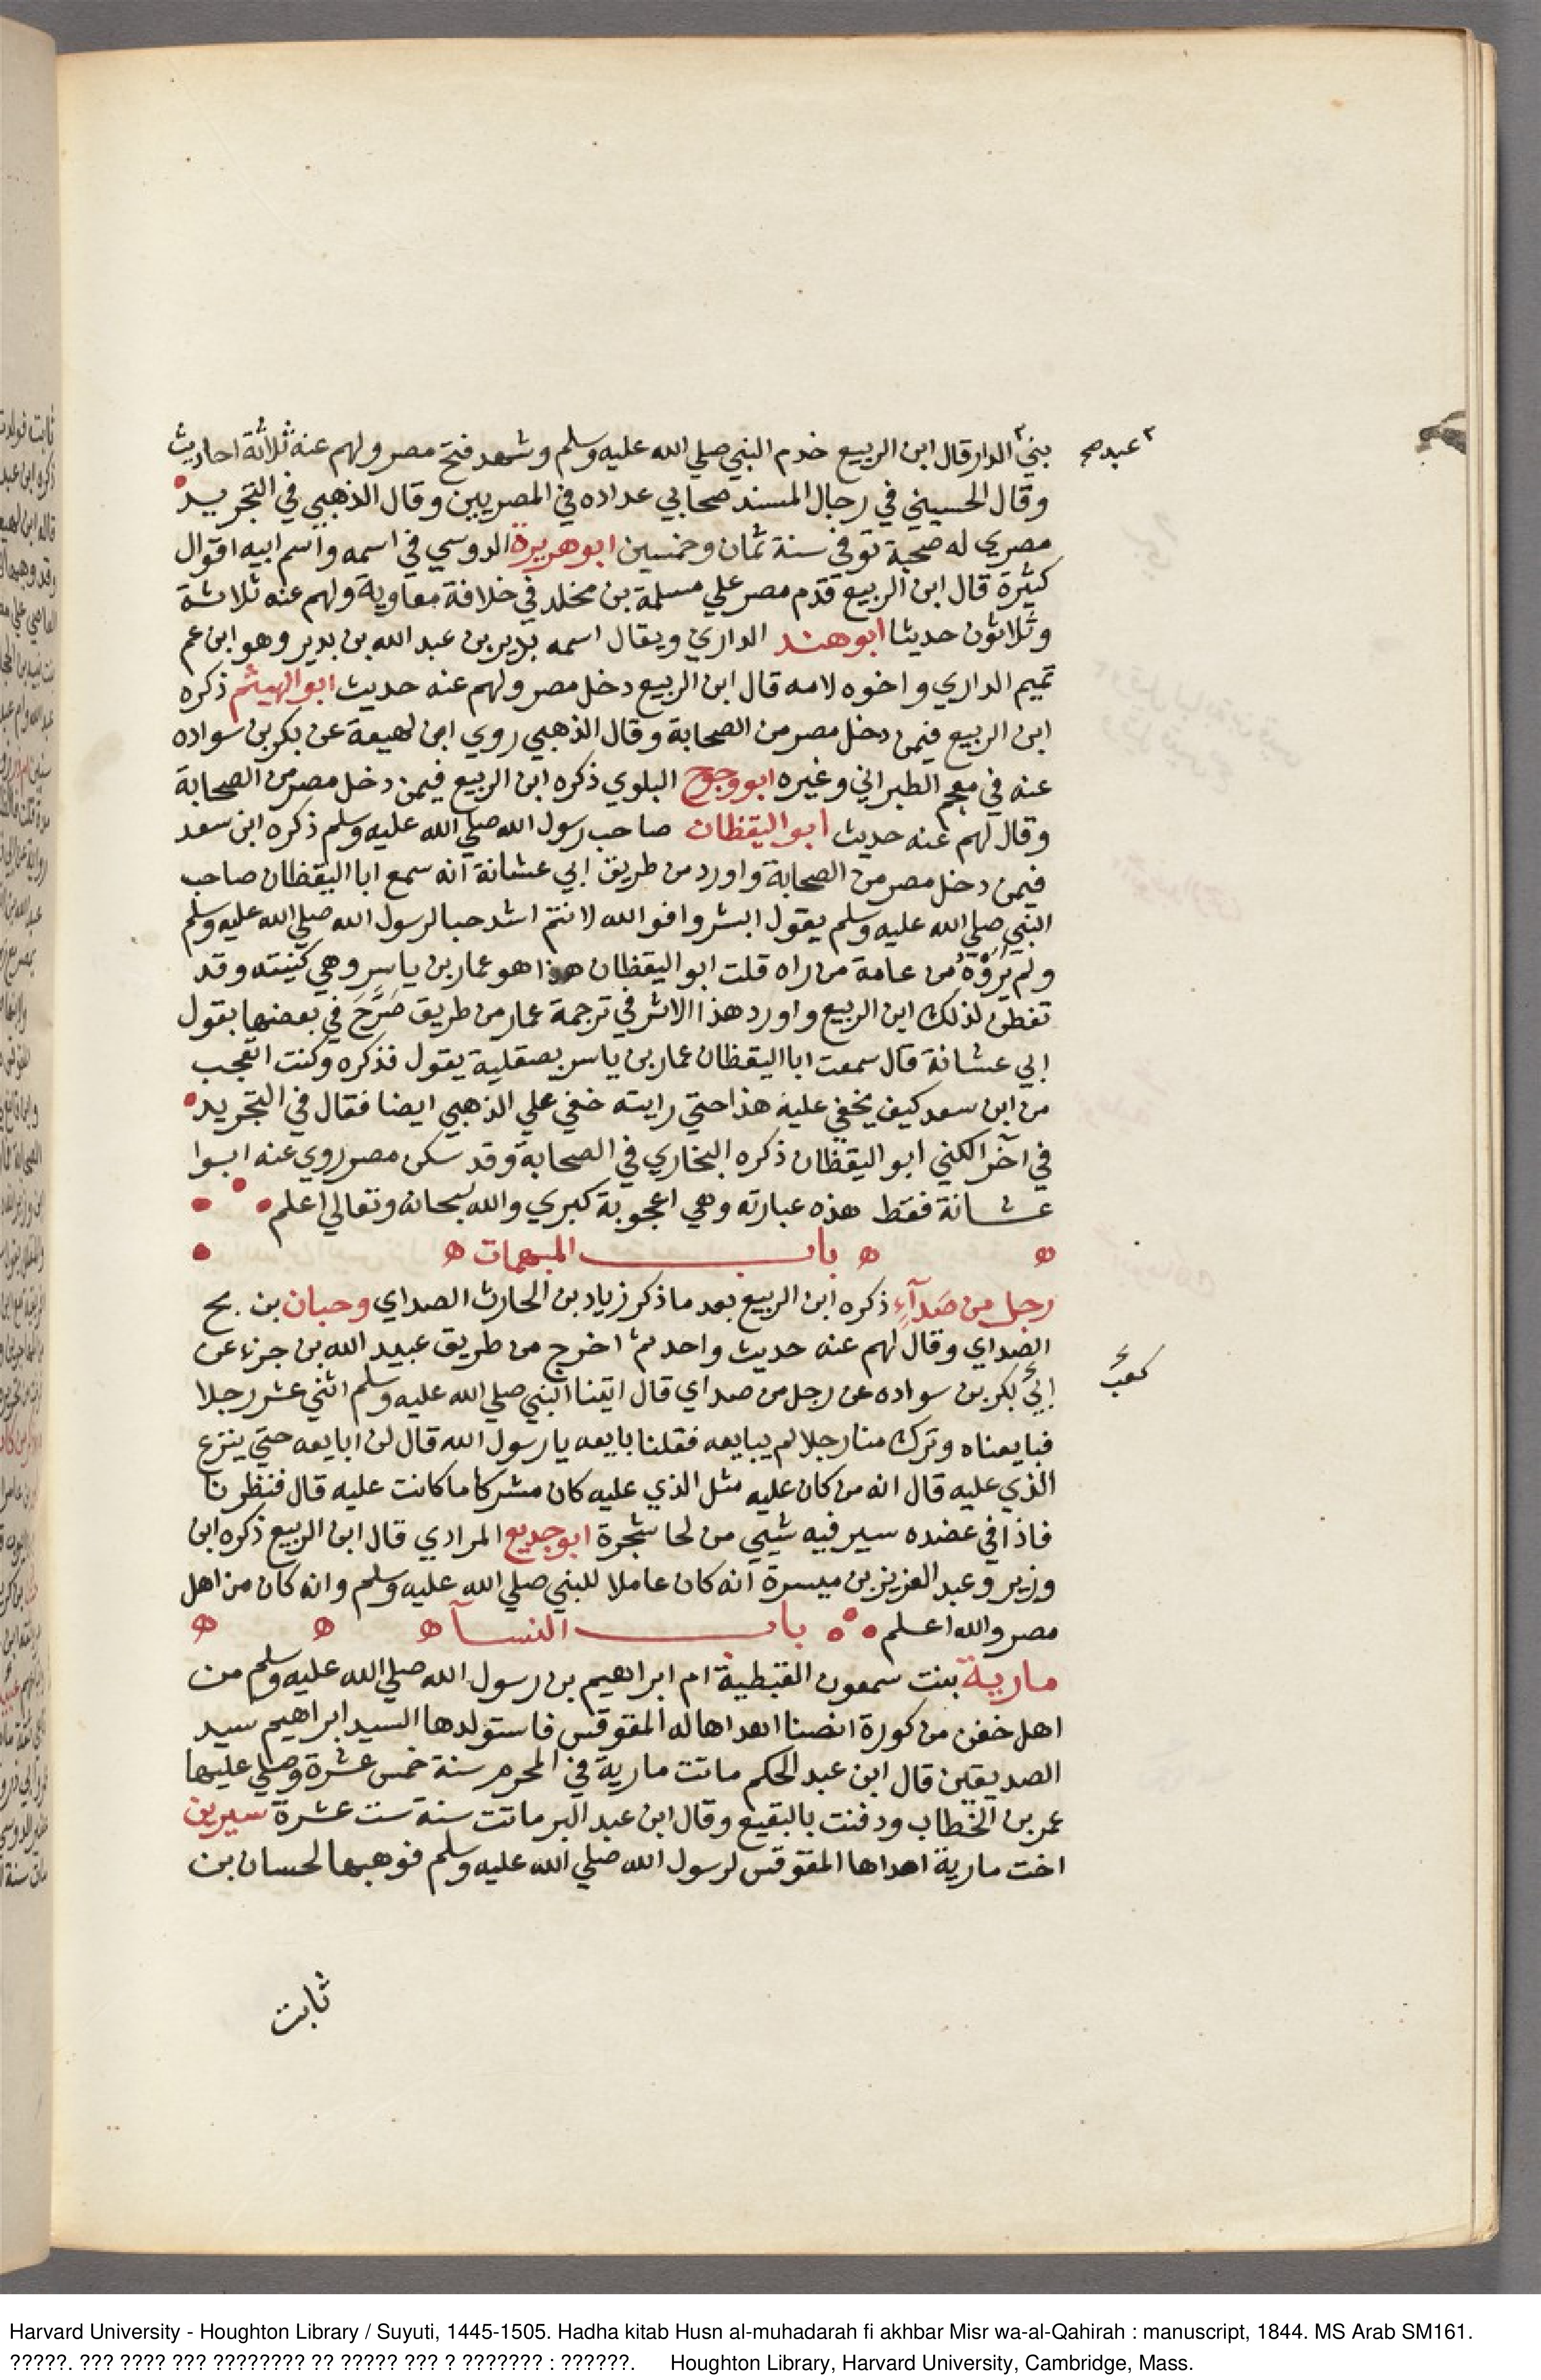 بني الدار قال ابن الربيع خدم النبي صلي الله عليه وسلم وشهد فتح مصر ولهم عنه ثلاثة احاديث
عبد صح
وقال الحسيني في رجال المسند صحابي عداده في المصريين وقال الذهبي في التجريد
مصري له صحبة توفي سنة ثمان وخمسين ابو هريرة الدوسي في اسمه واسم ابيه اقوال
كثيرة قال ابن الربيع قدم مصر علي مسلمة بن مخلد في خلافة معاوية ولهم عنه ثلاثة
وثلاثون حديثا ابو هند الداري ويقال اسمه بدير بن عبد الله بن بدير وهو ابن عم
تميم الداري واخوه لامه قال ابن الربيع دخل مصر ولهم عنه حديث ابو الهيثم ذكره
ابن الربيع فيمن دخل مصر من الصحابة وقال الذهبي روي ابن لهيعة عن بكر بن سواده
عنه في معجم الطبراني وغيره ابو وحوح البلوي ذكره ابن الربيع فيمن دخل مصر من الصحابة
وقال لهم عنه حديث ابو اليقظان صاحب رسول الله صلي الله عليه وسلم ذكره ابن سعد
فيمن دخل مصر من الصحابة واورد من طريق ابي عشانة انه سمع ابا اليقظان صاحب
النبي صلي الله عليه وسلم يقول ابشروا فوالله لانتم اشد حبا لرسول الله صلي الله عليه وسلم
ولم تروه من عامة من راه قلت ابو اليقظان هذا هو عمار بن ياسر وهي كنيته وقد
تفطن لذلك ابن الربيع واورد هذا الاثر في ترجمة عمار من طريق صرح في بعضها بقول
ابي عشانة قال سمعت ابا اليقظان عمار بن ياسر بصقلية يقول فذكره وكنت اتعجب
من ابن سعد كيف يخفي عليه هذا حتي رايته خفي علي الذهبي ايضا فقال في التجريد
في آخر الكني ابو اليقظان ذكره البخاري في الصحابة وقد سكن مصر روي عنه ابوا
عشانة فقط هذه عبارته وهي اعجوبة كبري والله سبحانه وتعالي اعلم
باب المبهمات
رجل من صدآء ذكره ابن الربيع بعد ما ذكر زياد بن الحارث الصداي وحبان بن بح
الصداي وقال لهم عنه حديث واحد ثم اخرج من طريق عبيد الله بن جزء عن
كعب
ابي بكر بن سواده عن رجل من صداي قال اتينا النبي صلي الله عليه وسلم اثني عشر رجلا
فبايعناه وترك منا رجلا لم يبايعه فقلنا بايعه يا رسول الله قال لن ابايعه حتي ينزع
الذي عليه قال انه من كان عليه مثل الذي عليه كان مشركا ما كانت عليه قال فنظرنا
فاذا في عضده سير فيه شيي من لحا شجرة ابو جديع المرادي قال ابن الربيع ذكره ابن
وزير وعبد العزيز بن ميسرة انه كان عاملا للنبي صلي الله عليه وسلم وانه كان من اهل
مصر والله اعلم باب النسآ
مارية بنت سمعون القبطية ام ابراهيم بن رسول الله صلي الله عليه وسلم من
اهل حفن من كورة انصنا اهداها له المقوقس فاستولدها السيد ابراهيم سيد
الصديقين قال ابن عبد الحكم ماتت مارية في المحرم سنة خمس عشرة وصلي عليها
عمر بن الخطاب ودفنت بالبقيع وقال ابن عبد البر ماتت سنة ست عشرة سيرين
اخت مارية اهداها المقوقس لرسول الله صلي الله عليه وسلم فوهبها لحسان بن
ثابت
Harvard University - Houghton Library / Suyuti, 1445-1505. Hadha kitab Husn al-muhadarah fi akhbar Misr wa-al-Qahirah : manuscript, 1844. MS Arab SM161.
?????. ??? ???? ??? ???????? ?? ????? ??? ? ??????? : ??????. Houghton Library, Harvard University, Cambridge, Mass.